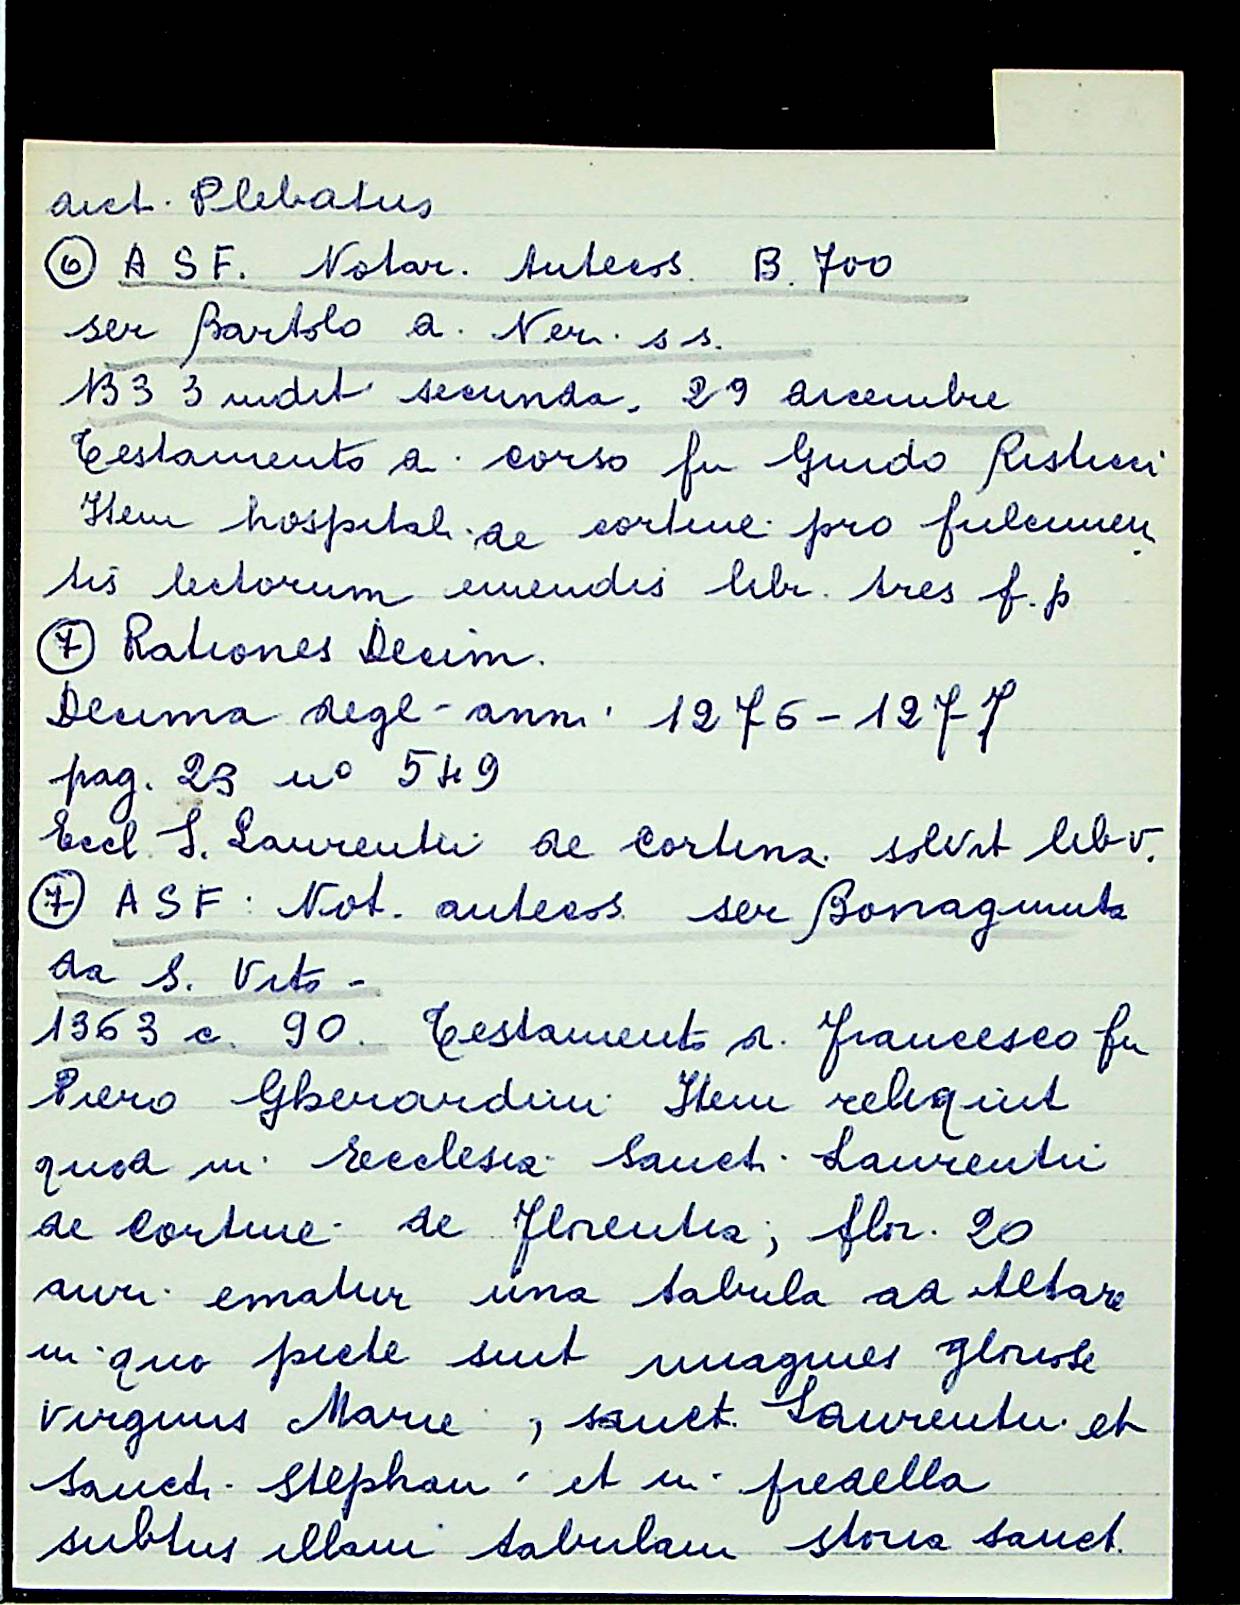 dict. Plebatus
⑥ A S F. Notar. Antecos. B. 700
ser Bartolo d. Neri. s s.
1333 indit secunda, 29 dicembre
Testamento di corso fu Guido Risticci
Item hospitali de cortine pro fulcimen
tis lectorum emendis libr. tres f. p
⑦ Rationes Decim.
Decima degl- anni 1276-1277
pag. 23 nº 549
Eccl. S. Laurentii de Cortina solvit lib v.
⑦ A S F: Not. antecos ser Bonagiunta
da S. Vito -
1363 c. 90. Testamento di Francesco fu
Piero Gherardini Item reliquit
quod in Ecclesia Sancti Laurentii
de Cortine de Florentia; flor. 20
auri ematur una tabula ad Altare
in quo picte sint imagines gloriose
Virginis Marie, sancti Laurentii et
Sancti Stephani et in predella
subtus illam tabulam storia sanct.